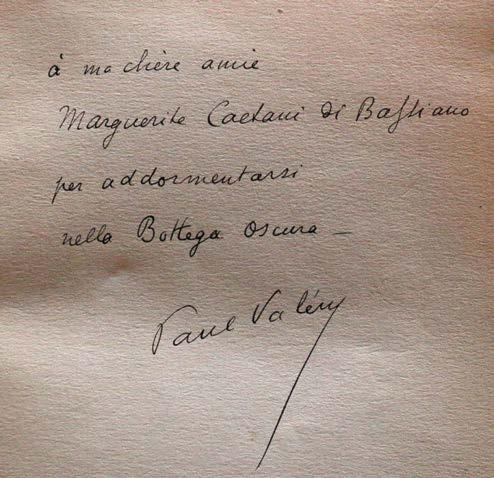 à ma chère amie
Marguerite Caetani di Bassiano
per addormentarsi
nella Bottega oscura —
Paul Valéry